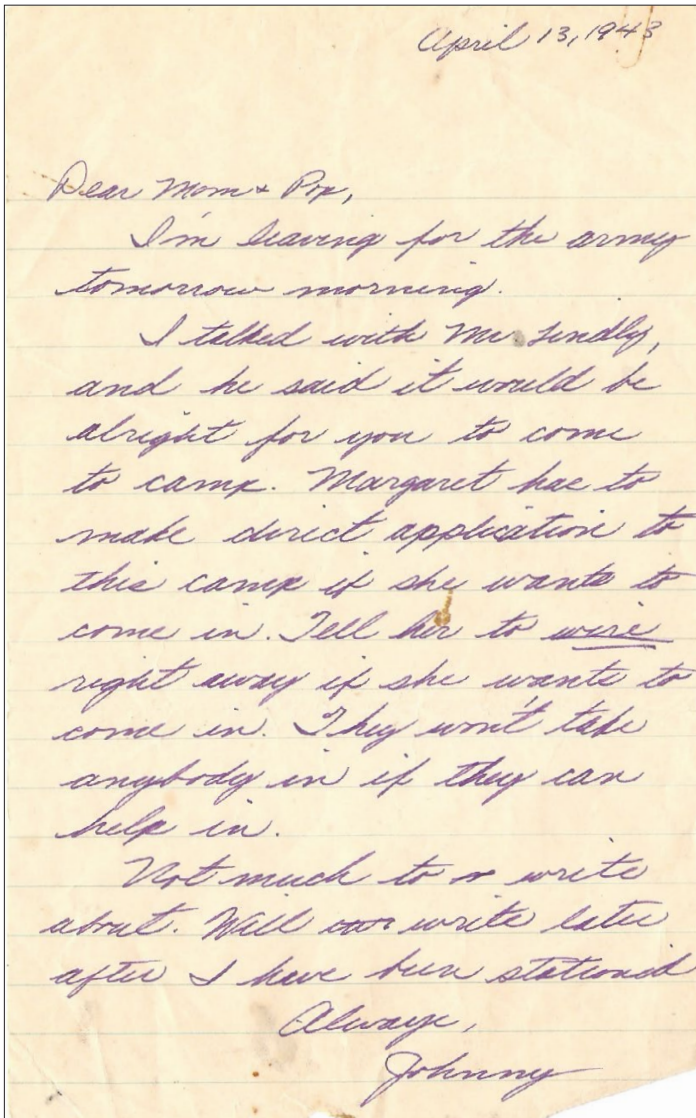 April 13, 1943
Dear Mom & Pop,
I'm leaving for the army
tomorrow morning.
I talked with Mr Lindly,
and he said it would be
alright for you to come
to camp. Margaret has to
make direct application to
this camp if she wants to
come in. Tell her to wire
right away if she wants to
come in. They won't take
anybody in if they can
help in.
Not much to write
about. Will write later
after I have been stationed
Always,
Johnny